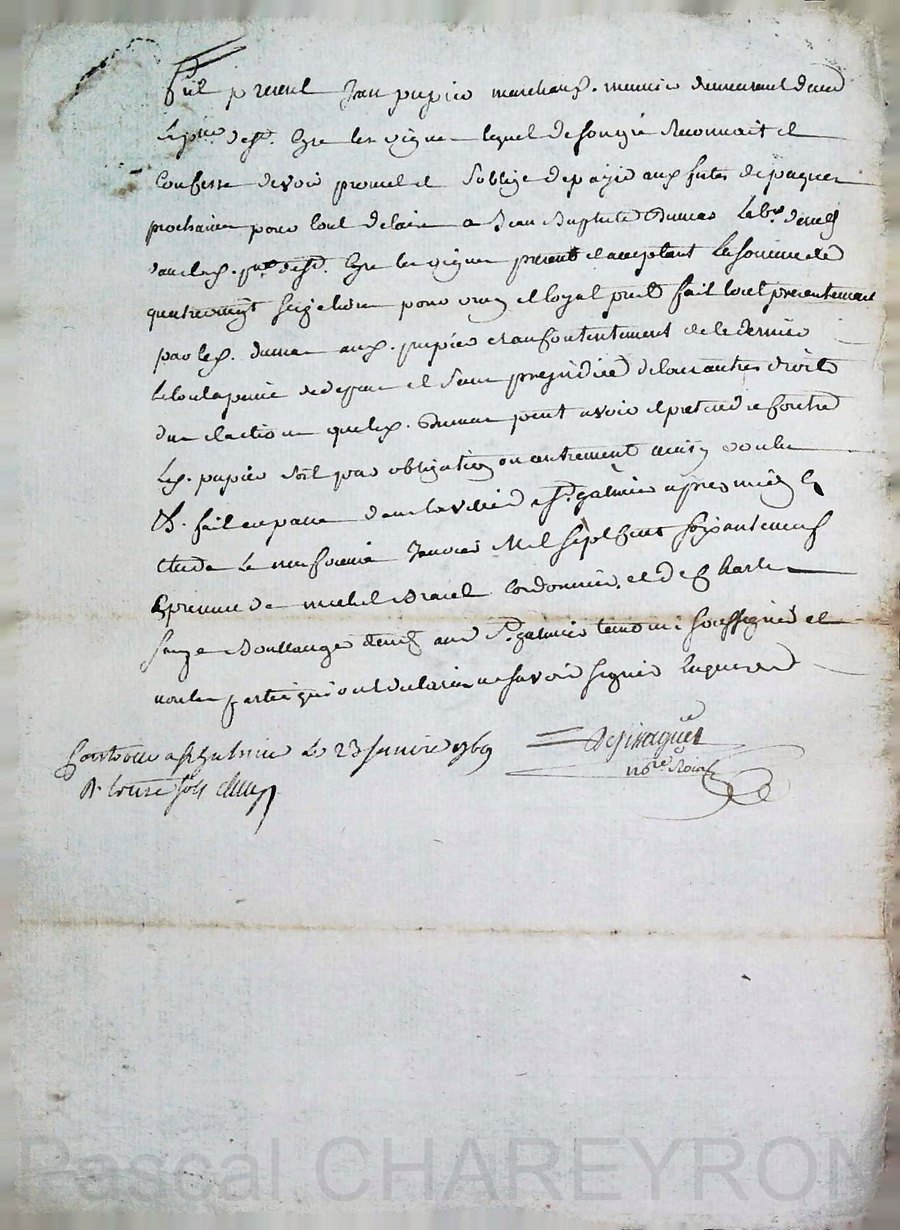 Fut présent Jean pupier marchand. munier demeurant dans
La psse. de st. Cyre les vignes lequel de son gré reconnait et
Confesse devoir promet et S'oblige de payer aux fetes de paques
prochaines pour tout delais a Jean Baptiste Dumas Lab.
de st. Cyre les vignes présent et acceptant La Somme de
quatrevingt seize livres pour vray et loyal prêt fait tout presentement
par led. dumas aud. pupier et au Contentement de ce dernier
Le tout a peine de depens et Sans prejudice de tous autres droits
et actions que led. Dumas peut avoir et pretendre Contre
Led. pupier soit par obligation ou autrement ainsy voulu
fait et passé dans la ville de st. galmier apres midy
Etude Le neuf Janvier Mil Sept Cent Soixante neuf
En presence de michel Cordonnier, et de Charles
Boullanger aud. St. galmier temoins soussignés et
non les parties qui ont declaré ne savoir signer Enquis
Controllé a St galmier Le 23 Janvier 1769
R. treize sols
nore. Royal
Pascal CHAREYRON